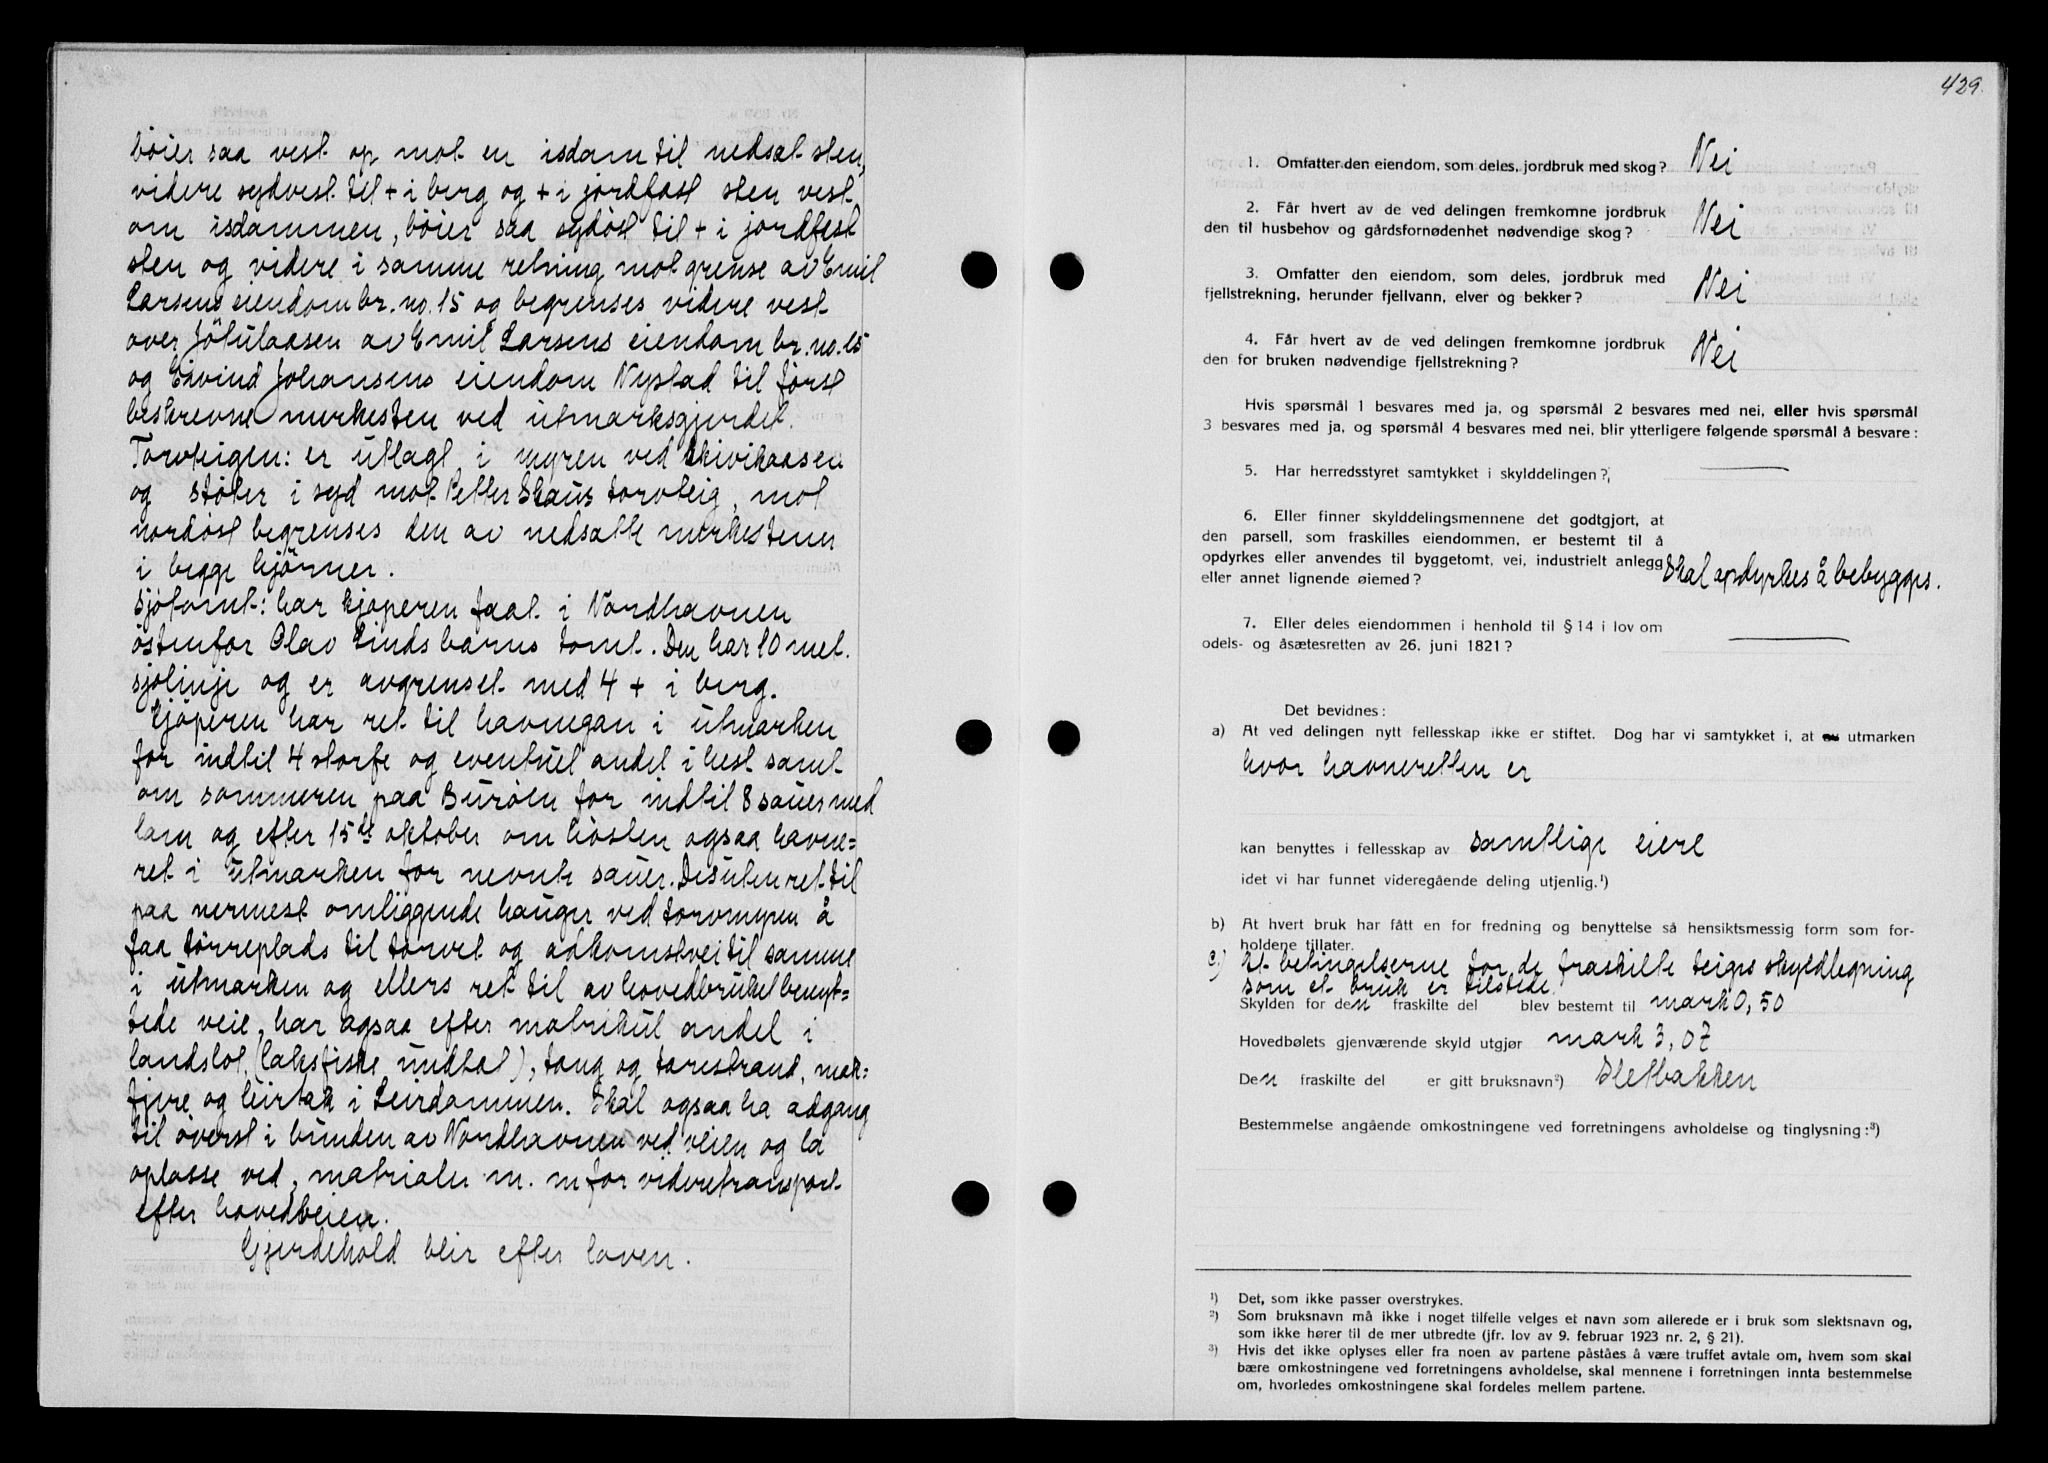 bøier saa vest op mot en isdam til nedsat sten,
videre sydvest til + i berg og + i jordfast sten vest
om isdammen, bøier saa sydøst til + i jordfast
sten og videre i samme retning mot grense av Emil
Larsens eiendom br. no. 15 og begrenses videre vest
over Jøtulaasen av Emil Larsens eiendom br. no. 15
og Eivind Johansens eiendom Nystad til først
beskrevne merkesten ved utmarksgjerdet.
Torvteigen: er utlagt i myren ved Skivikaasen
og støter i syd mot Petter Skaus torvteig, mot
nordøst begrenses den av nedsatte merkestener
i begge hjørner.
Sjøtomt: har kjøperen faat i Nordhavnen
østenfor Olav Lindsbarns tomt. Den har 10 met.
sjølinje og er avgrenset med 4 + i berg.
Kjøperen har ret til havnegan i utmarken
for indtil 4 storfe og eventuel andel i hest samt
om sommeren paa Burøen for indtil 8 sauer med
lam og efter 15de oktober om høsten ogsaa havne=
ret i utmarken for nevnte sauer. Desuten ret til
paa nermest omliggende hauger ved torvmyren å
faa tørreplads til torvet og adkomstvei til samme
i utmarken og ellers ret til av hovedbruket benyt=
tede veie, har ogsaa efter matrikul andel i
landslot, (laksfiske undtat), tang og tarestrand, mak=
fjære og leirtak i Leirdammen. Skal ogsaa ha adgang
til øverst i bunden av Nordhavnen ved veien og la
oplasse ved, matrialer m. m for videretransport
efter hovedveien.
Gjerdehold blir efter loven.
429.
1. Omfatter den eiendom, som deles, jordbruk med skog? Nei
2. Får hvert av de ved delingen fremkomne jordbruk
den til husbehov og gårdsfornødenhet nødvendige skog? Nei
3. Omfatter den eiendom, som deles, jordbruk med
fjellstrekning, herunder fjellvann, elver og bekker? Nei
4. Får hvert av de ved delingen fremkomne jordbruk
den for bruken nødvendige fjellstrekning? Nei
Hvis spørsmål 1 besvares med ja, og spørsmål 2 besvares med nei, eller hvis spørsmål
3 besvares med ja, og spørsmål 4 besvares med nei, blir ytterligere følgende spørsmål å besvare:
5. Har herredsstyret samtykket i skylddelingen?
6. Eller finner skylddelingsmennene det godtgjort, at
den parsell, som fraskilles eiendommen, er bestemt til å
opdyrkes eller anvendes til byggetomt, vei, industrielt anlegg
eller annet lignende øiemed? Skal opdyrkes å bebygges.
7. Eller deles eiendommen i henhold til § 14 i lov om
odels- og åsætesretten av 26. juni 1821?
Det bevidnes:
a) At ved delingen nytt fellesskap ikke er stiftet. Dog har vi samtykket i, at utmarken
hvor havneretten er
kan benyttes i fellesskap av samtlige eiere
idet vi har funnet videregående deling utjenlig.¹)
b) At hvert bruk har fått en for fredning og benyttelse så hensiktsmessig form som for-
holdene tillater.
c) At betingelserne for de fraskilte teiges skyldlegning
som et bruk er tilstede.
Skylden for den fraskilte del blev bestemt til mark 0,50
Hovedbølets gjenværende skyld utgjør mark 3,07
Den fraskilte del er gitt bruksnavn²) Sletbakken
Bestemmelse angående omkostningene ved forretningens avholdelse og tinglysning:³)
¹) Det, som ikke passer overstrykes.
²) Som bruksnavn må ikke i noget tilfelle velges et navn som allerede er i bruk som slektsnavn og,
som ikke hører til de mer utbredte (jfr. lov av 9. februar 1923 nr. 2, § 21).
³) Hvis det ikke oplyses eller fra noen av partene påståes å være truffet avtale om, hvem som skal
bære omkostningene ved forretningens avholdelse, skal mennene i forretningen innta bestemmelse
om, hvorledes omkostningene skal fordeles mellem partene.